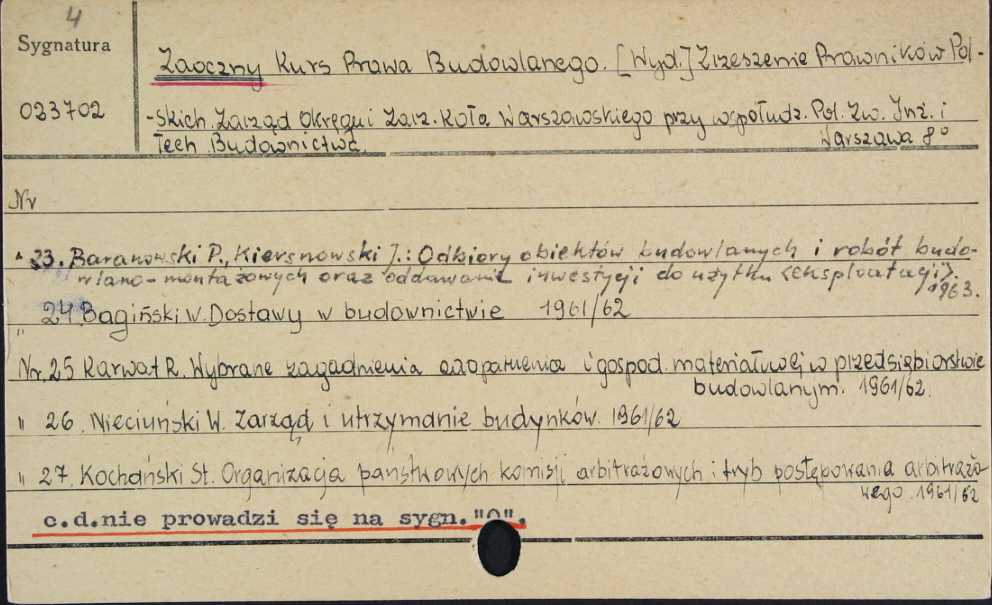 4
Sygnatura
023702
Zaoczny Kurs Prawa Budowlanego. [Wyd.] Zrzeszenie Prawników Pol-
-skich. Zarząd Okręgu i Zarz. Koła Warszawskiego przy współudz. Pol. Zw. Inż. i
Tech Budownictwa. Warszawa 8°
Nr
" 23. Baranowski P., Kiersnowski J.: Odbiory obiektów budowlanych i robót budo-
wlano-montażowych oraz oddawanie inwestycji do użytku <eksploatacji>.
1963.
" 24. Bagiński W. Dostawy w budownictwie 1961/62
Nr. 25 Karwat R. Wybrane zagadnienia zaopatrzenia i gospod. materiałowej w przedsiębiorstwie
budowlanym. 1961/62.
" 26. Nieciuński W. Zarząd i utrzymanie budynków. 1961/62
" 27. Kochański St. Organizacja państwowych komisji arbitrażowych i tryb postępowania arbitrażo-
wego. 1961/62
c.d.nie prowadzi się na sygn."O".